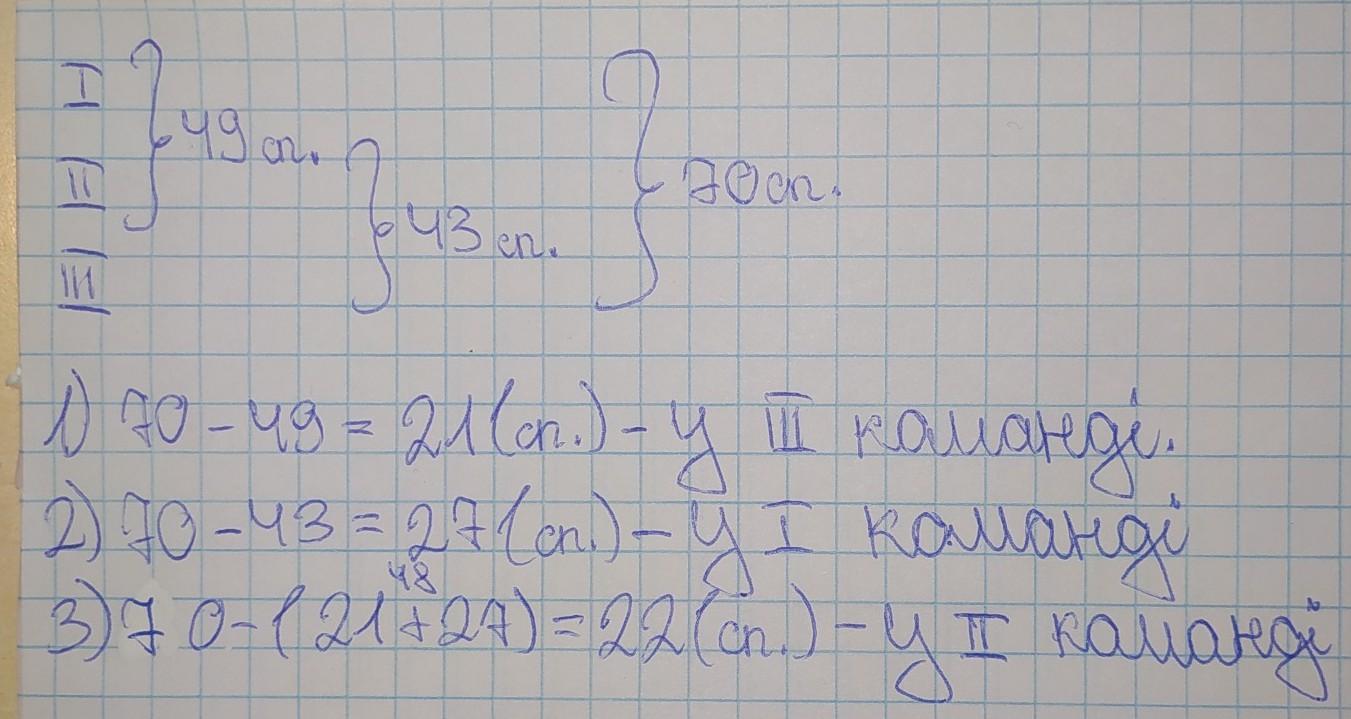 I
49 сп.
II
70 сп.
43 сп.
III
1) 70 - 49 = 21 (сп.) - у III команді.
2) 70 - 43 = 27 (сп.) - у I команді
48
3) 70 - (21 + 27) = 22 (сп.) - у II команді